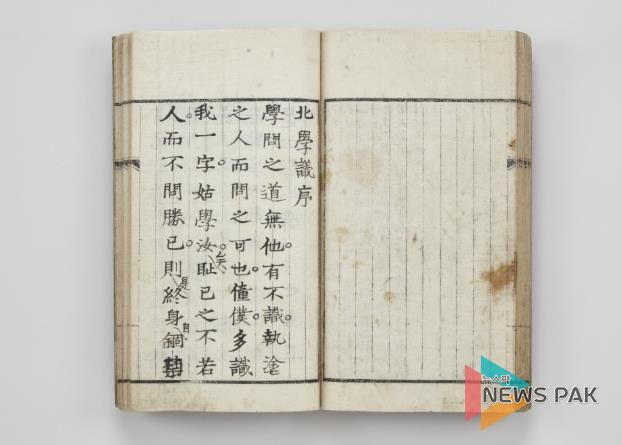 北學議序
學問之道無他。有不識。執塗
之人而問之可也。僮僕。多識
我一字。姑學汝。矣耻已之不若
人。而不問勝已。則是終身自錮
뉴스팍
NEWS PAK